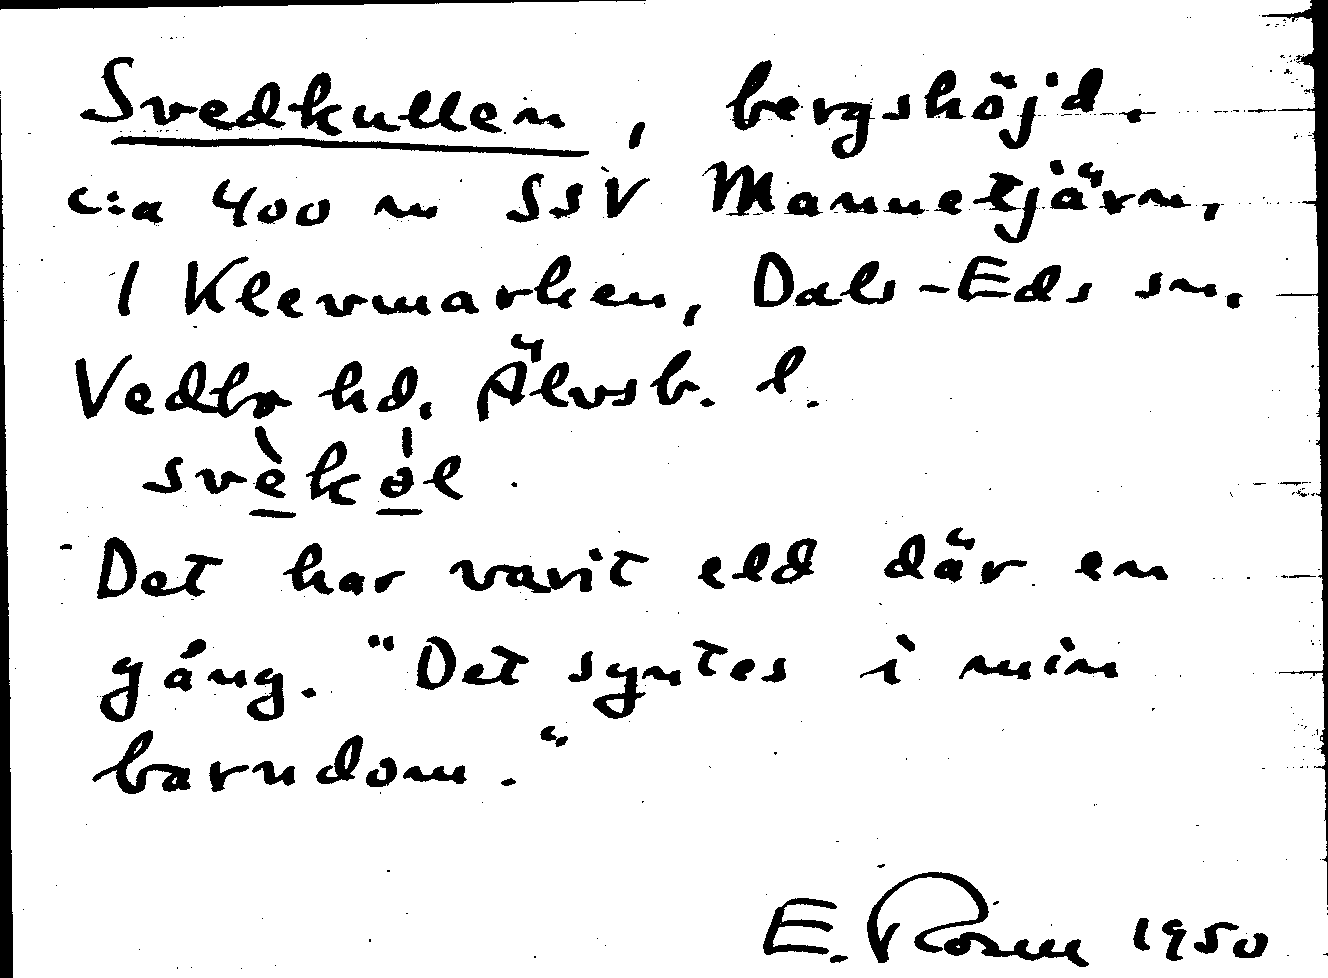 Svedkullen, bergshöjd.
c:a 400 m SSV Mannetjärn,
I Klevmarken, Dals-Eds sn.
Vedbo hd. Älvsb. l.
svèkól
Det har varit eld där en
gång. "Det syntes i min
barndom."
E. Rosm 1950